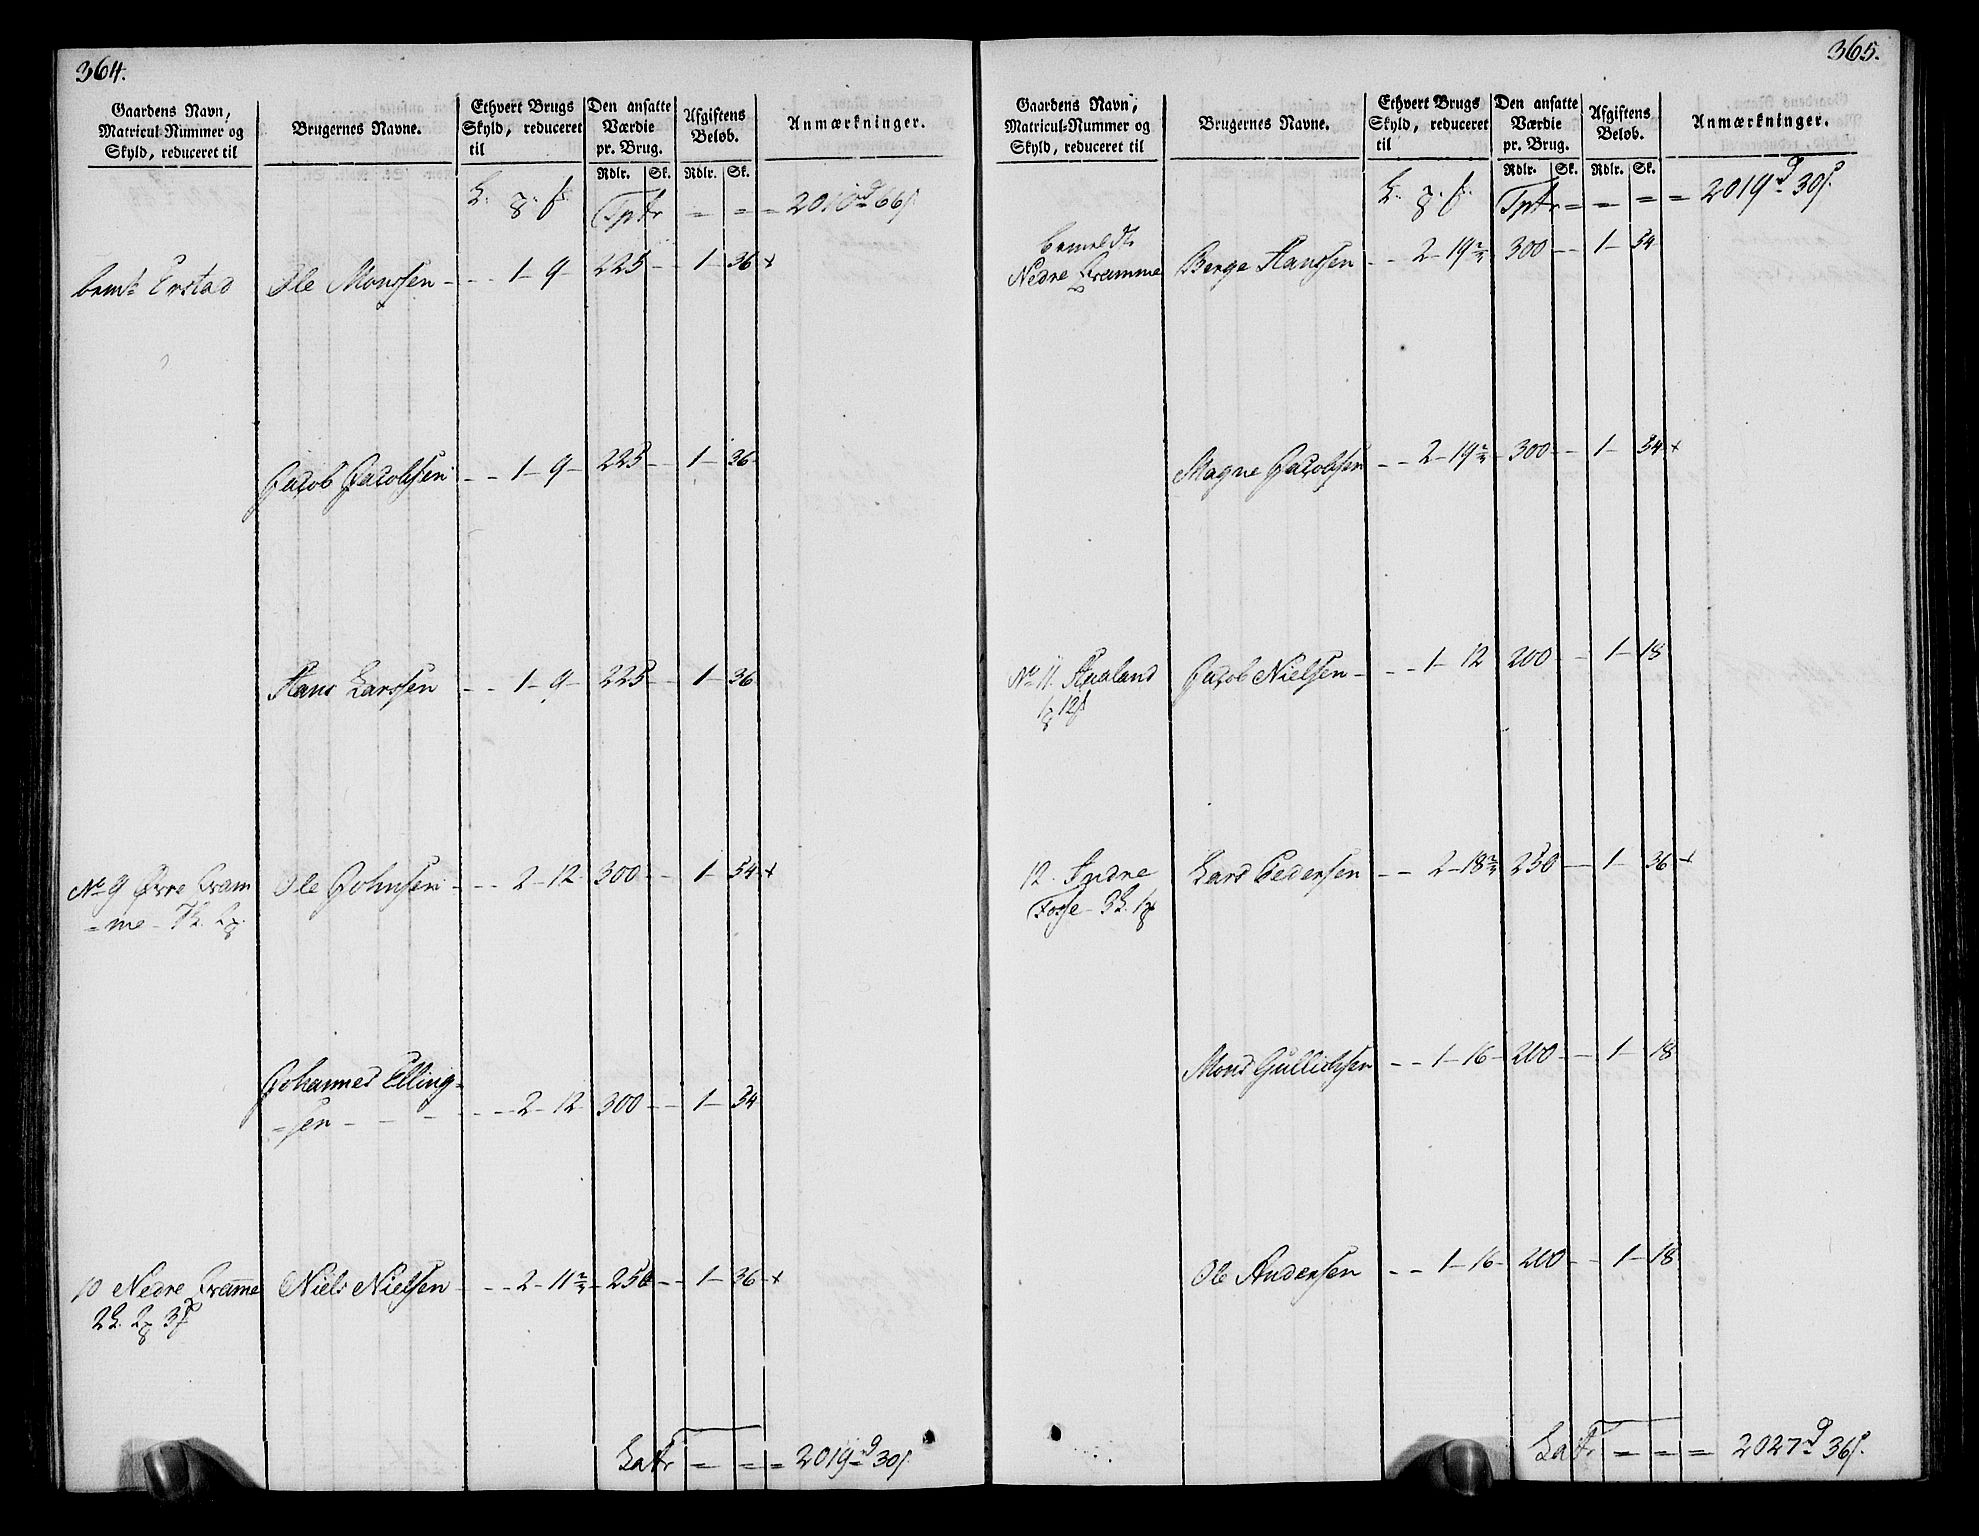 364.
Gaardens Navn,
Matricul-Nummer og
Skyld, reduceret til
Brugernes Navne.
Ethvert Brugs
Skyld, reduceret
til
Den ansatte
Værdie
pr. Brug.
Afgiftens
Beløb.
Anmærkninger.
Rdlr. Sk. Rdlr. Sk.
Tptr = = = 2010 rd 66 s.
bemte Erstad Ole Monssen - - - 1 - 9 - 225 - - 1 - 36 +
Jacob Jacobsen - - 1 - 9 - 225 - - 1 - 36
Hans Larssen - - 1 - 9 - 225 - - 1 - 36
No 9 Øvre Bram Ole Johnsen - - - 2 - 12 300 - - 1 - 54 +
= me -
Johannes Elling=
= sen - - - - - - 2 - 12 300 - - 1 - 54
10 Nedre Brame Niels Nielsen - - - 2 - 11 2/3 - 250 - - 1 - 36 +
Latr = = = 2019 rd 30 s.
365.
Gaardens Navn,
Matricul-Nummer og
Skyld, reduceret til
Brugernes Navne.
Ethvert Brugs
Skyld, reduceret
til
Den ansatte
Værdie
pr. Brug.
Afgiftens
Beløb.
Anmærkninger.
Rdlr. Sk. Rdlr. Sk.
Tptr = = = = 2019 rd 30 s.
bemeldte
Nedre Bramme Berge Hanssen - - 2 - 19 2/3 300 - - 1 - 54
Magne Jacobsen - - 2 - 19 2/3 - 300 - - 1 - 54 +
No 11. Haaland Jacob Nielsen - - - 1 - 12 200 - - 1 - 18
12. Indre Lars Pedersen - - 2 - 18 2/3 250 - 1 - 36 +
Fosse -
Mons Gullichsen - - 1 - 16 - 200 - - 1 - 18
Ole Andersen - - 1 - 16 - 200 - - 1 - 18
Latr = = = 2027 rd 36 s.